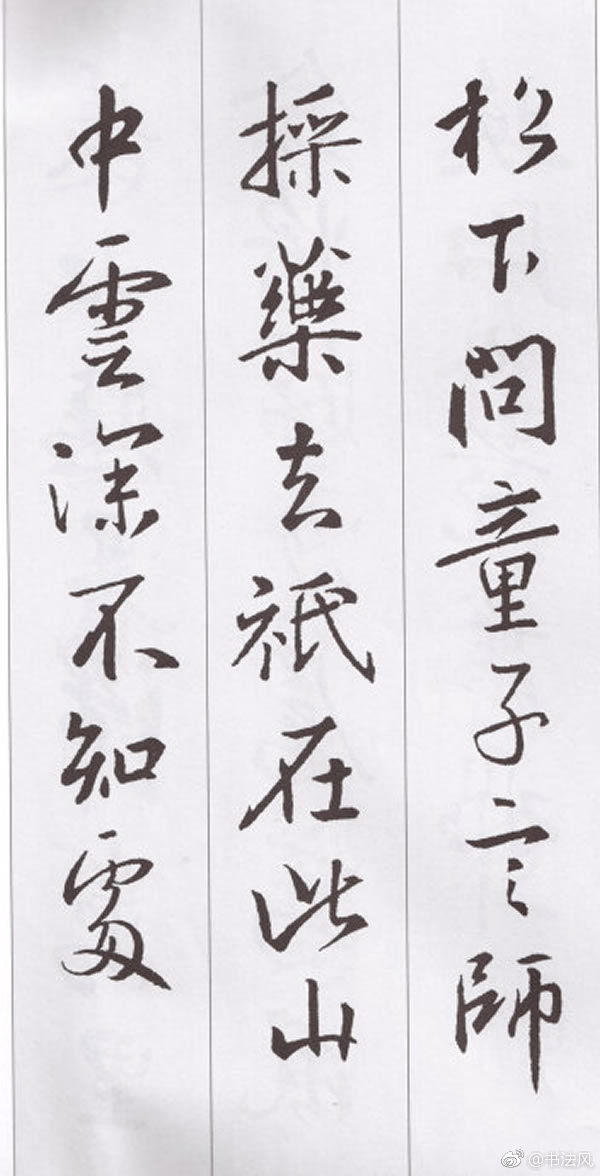 松下問童子言師
採藥去祇在此山
中雲深不知處
@书法风